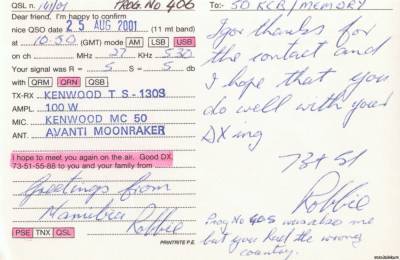 QSL n. 141/01 PROG. No 406
To:- 50 KCB/MEMORY
Dear friend, I'm happy to confirm
nice QSO date 25 AUG 2001 (11 mt band)
at 10-50 (GMT) mode AM LSB USB
on ch MHz 27 KHz 530
Your signal was R = 5 S = 5 db
with QRM QRN QSB
TX-RX KENWOOD T S - 130S
AMPL. 100 W
MIC. KENWOOD MC 50
ANT. AVANTI MOONRAKER
I hope to meet you again on the air. Good DX,
73-51-55-88 to you and your family from
Greetings from
Robbie
PSE TNX QSL
PRINTRITE P.E.
thanks for
the contact and
I hope that you
do well with your
DXing
73 + 51
Robbie
Prog No 405 was also me
but you had the wrong
country.